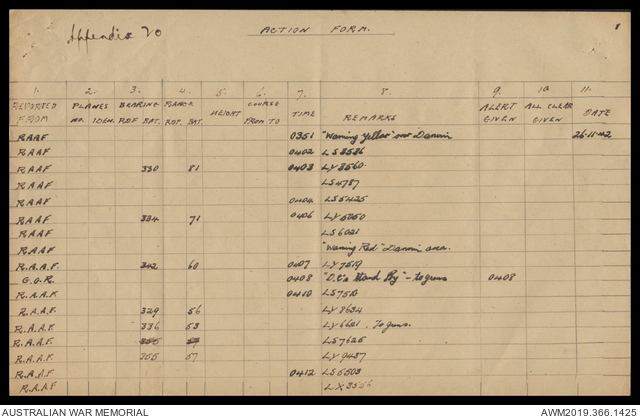 Appendix 20
ACTION FORM.
1
1. 2. 3. 4. 5. 6. 7. 8. 9. 10. 11.
REPORTED FROM PLANES NO. IDEN. BEARING RDF BAT. RANGE RDF. BAT. HEIGHT COURSE FROM TO TIME REMARKS ALERT GIVEN ALL CLEAR GIVEN DATE
RAAF 0351 "Warning Yellow" over Darwin 26.11.42
RAAF 0402 LS3536
RAAF 330 81 0403 LY3560
RAAF LS4787
RAAF 0404 LS5425
RAAF 334 71 0406 LY5050
RAAF LS6021
RAAF "Warning Red" Darwin area.
R.A.A.F. 342 60 0407 LY7519
G.O.R. 0408 "D.C's Stand By" - to guns 0408
R.A.A.F. 0410 LS7510
R.A.A.F. 329 56 LY8634
R.A.A.F. 336 53 LY6621. To guns.
R.A.A.F. LS7625
R.A.A.F. 355 57 LY9437
R.A.A.F. 0412 LS6503
RAAF LX3556
AUSTRALIAN WAR MEMORIAL AWM2019.366.1425